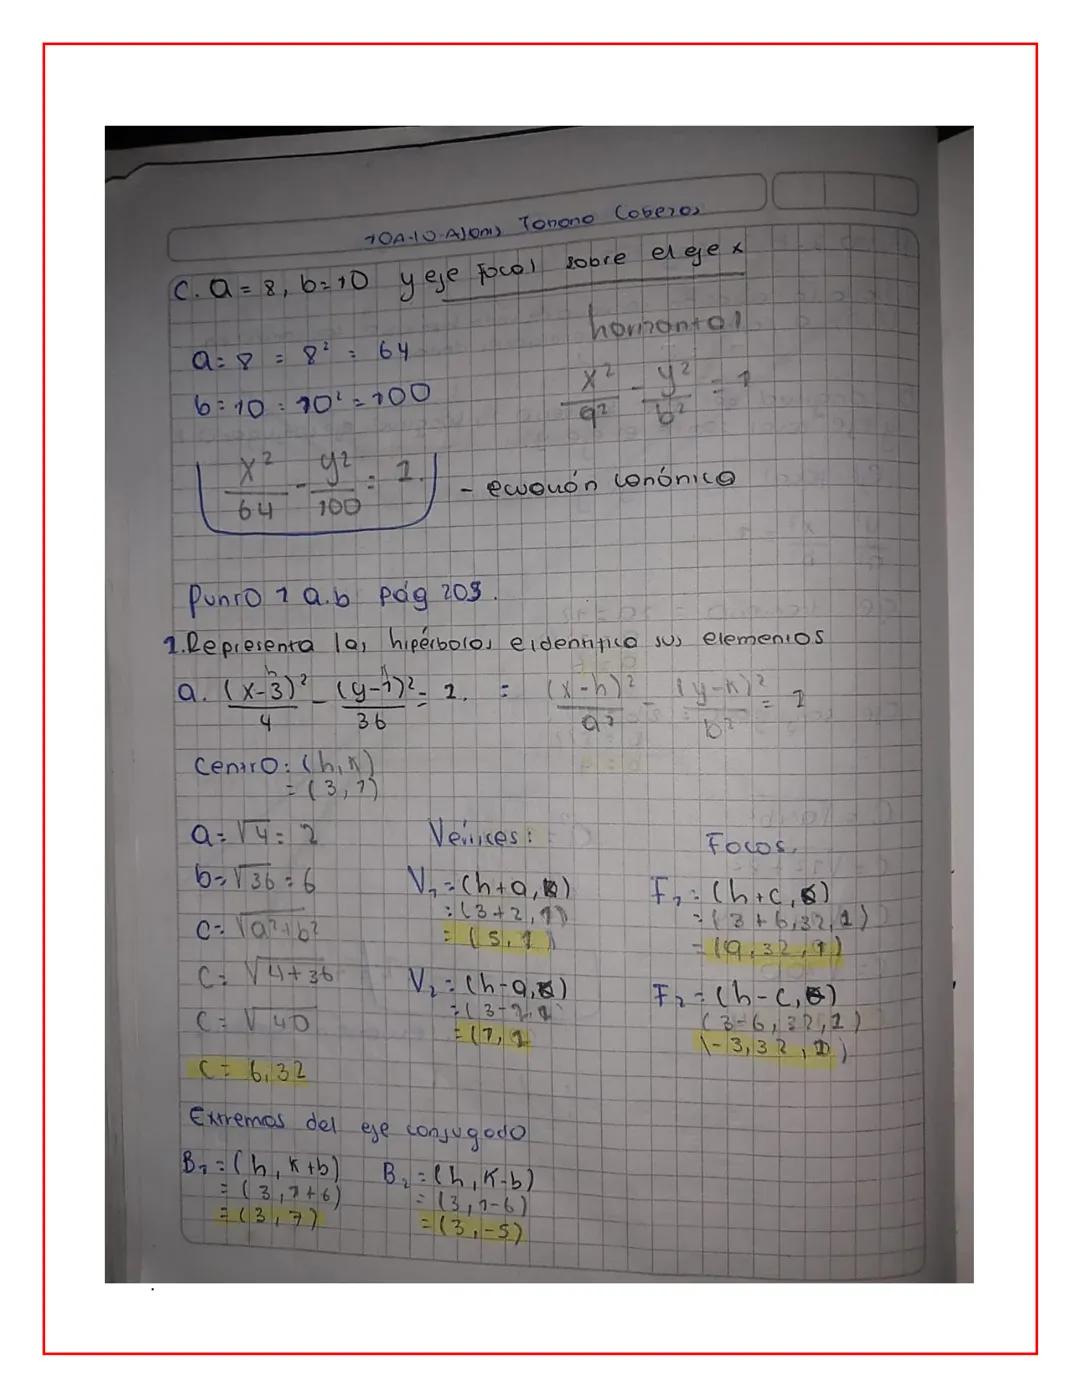 C. a = 8, b = 10 y eje focal sobre el eje x
horizontal
a = 8 = 8² = 64
b = 10 = 10² = 100
x²/a² - y²/b² = 1
x²/64 - y²/100 = 1. - ecuación canónica
Punto 1 a.b pág 203.
1. Representa las hipérbolas e identifica sus elementos
a. (x-3)²/4 - (y-1)²/36 = 1. = (x-h)²/a² - (y-k)²/b² = 1
Centro: (h, k)
= (3, 1)
a = √4 = 2
b = √36 = 6
c = √a²+b²
c = √4+36
c = √40
c = 6,32
Vértices:
V₁ = (h+a, k)
= (3+2, 1)
= (5, 1)
V₂ = (h-a, k)
= (3-2, 1
= (1, 1
Focos.
F₁ = (h+c, k)
= (3+6,32, 1)
= (9,32, 1)
F₂ = (h-c, k)
(3-6,32, 1)
(-3,32, 1)
Extremos del eje conjugado
B₁ = (h, k+b)
= (3, 1+6)
= (3, 7)
B₂ = (h, k-b)
= (3, 1-6)
= (3, -5)